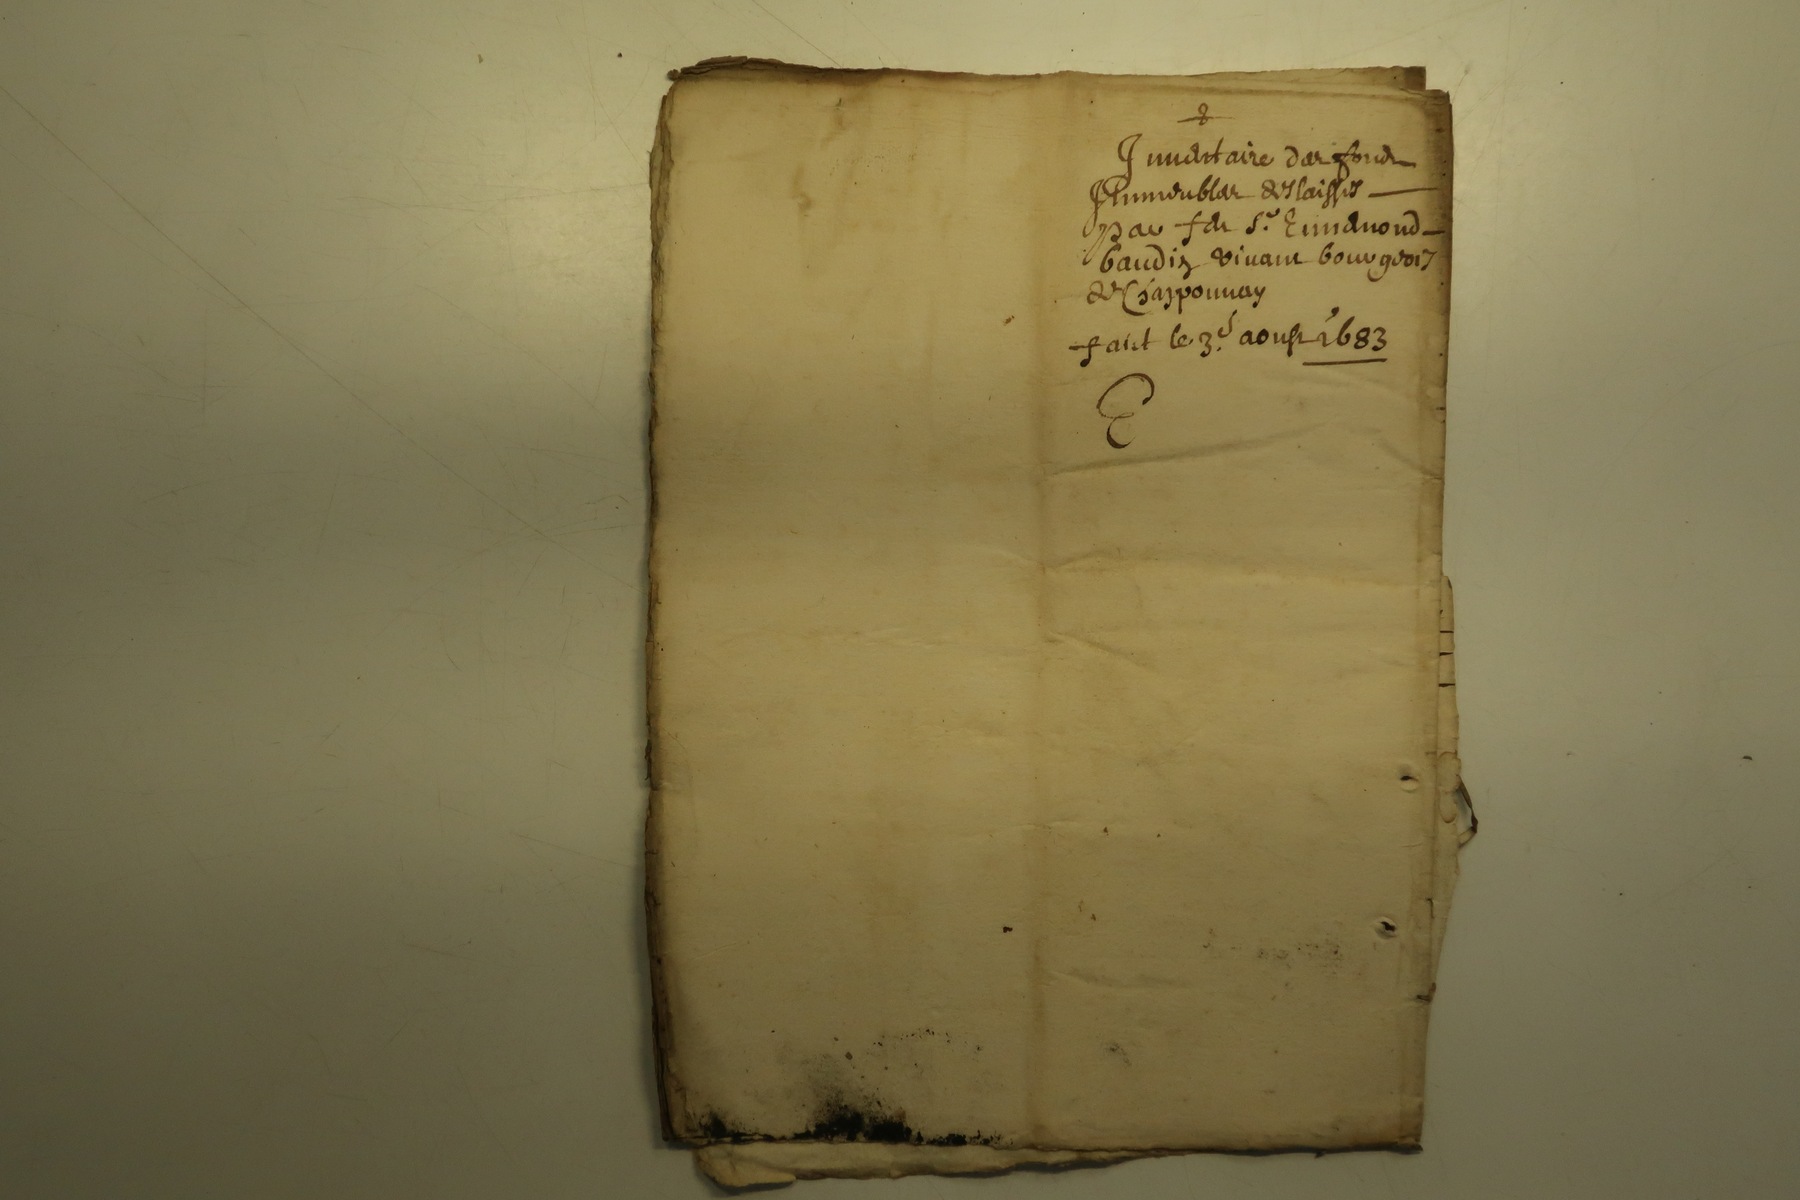 Inventaire des fonds
Immeubles delaissés
par feu Sr. Ennemond
baudin vivant bourgeois
de Chapponnay
fait le 3e. aoust 1683
E